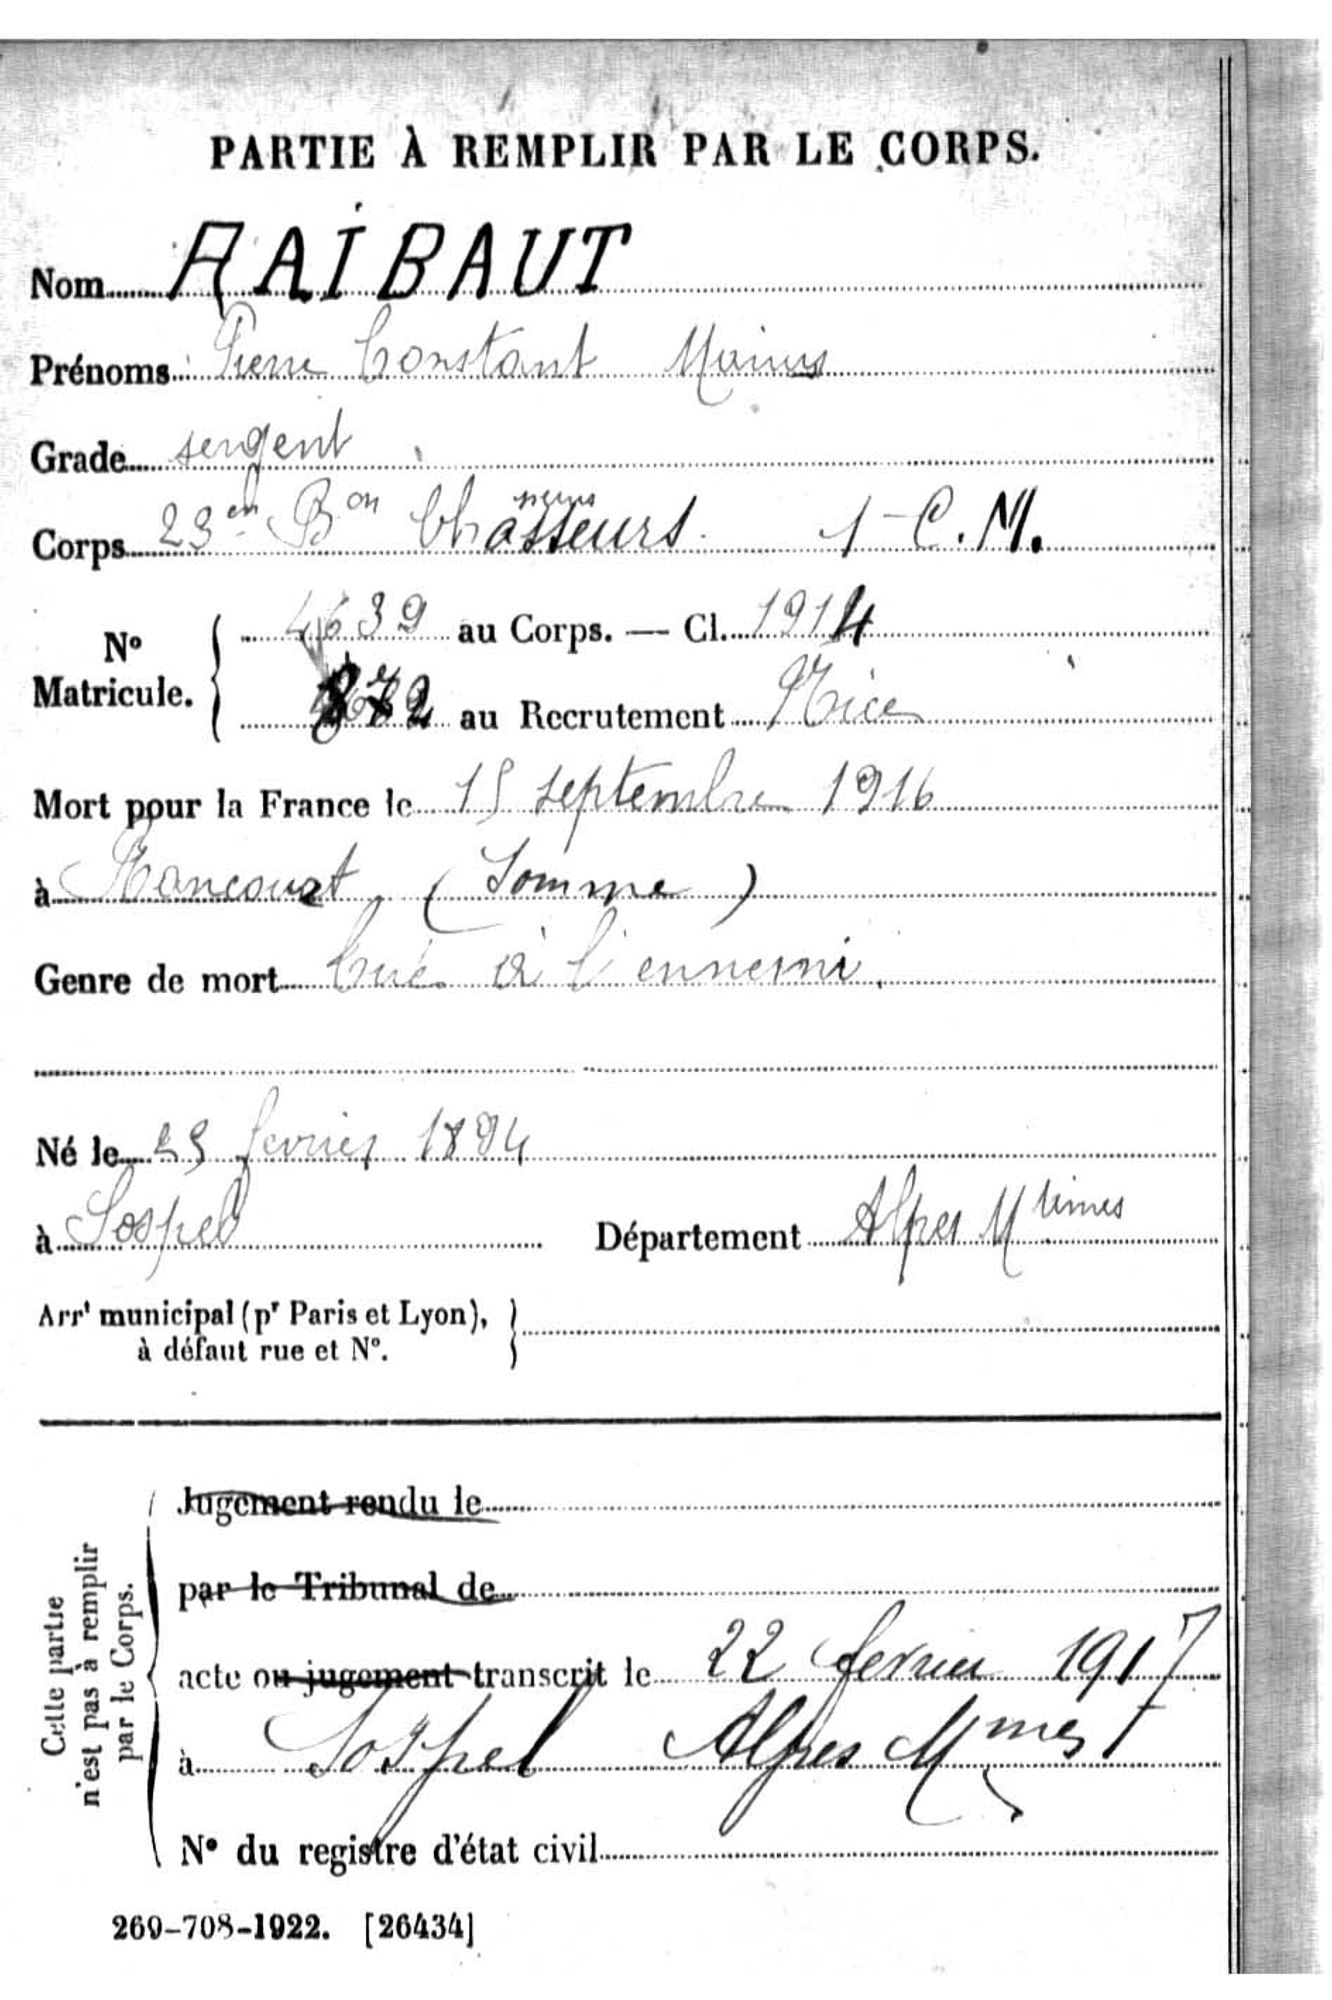 PARTIE À REMPLIR PAR LE CORPS.
Nom RAIBAUT
Prénoms Pierre Constant Marius
Grade sergent
Corps 23en Bon Chasseurs 1 C.M.
No Matricule. 4639 au Corps. — Cl. 1914
872 au Recrutement Nice
Mort pour la France le 15 septembre 1916
à Rancourt (Somme)
Genre de mort tué à l'ennemi
Né le février 1894
à Sospel Département Alpes Mtimes
Arrt municipal (pr Paris et Lyon),
à défaut rue et No.
Cette partie
n'est pas à remplir
par le Corps.
Jugement rendu le
par le Tribunal de
acte ou jugement transcrit le 22 fevrier 1917
à Sospel Alpes Mmes
No du registre d'état civil
269-708-1922. [26434]